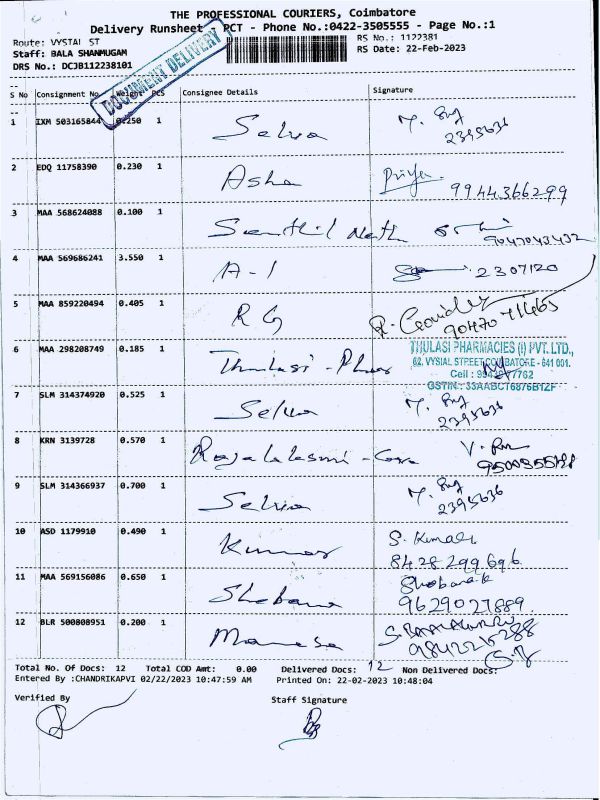 THE PROFESSIONAL COURIERS, Coimbatore
Delivery Runsheet - PCT - Phone No.:0422-3505555 - Page No.:1
Route: VYSTAL ST
RS No.: 1122381
Staff: BALA SHANMUGAM
RS Date: 22-Feb-2023
DRS No.: DCJB112238101
DOCUMENT DELIVERY
S No Consignment No. Weight PCS Consignee Details Signature
1 IXM 503165844 0.250 1 Selva 2395636
2 EDQ 11758390 0.230 1 Asha Priya 9944366299
3 MAA 568624088 0.100 1 Senthil Nath 9047043432
4 MAA 569686241 3.550 1 A-1 2307120
5 MAA 859220494 0.405 1 RG
6 MAA 298208749 0.185 1 Thulasi - Phar
THULASI PHARMACIES (I) PVT. LTD.,
62, VYSIAL STREET, COIMBATORE - 641 001.
Cell :
GSTIN : 33AABCT6876B1ZF
7 SLM 314374920 0.525 1 Selva 2395636
8 KRN 3139728 0.570 1 V.
9 SLM 314366937 0.700 1 Selva 2395636
10 ASD 1179910 0.490 1 Kumar S. Kumar 8428299696
11 MAA 569156086 0.650 1 Shobana Shobana k 9629027889
12 BLR 500808951 0.200 1 9842215288
Total No. Of Docs: 12 Total COD Amt: 0.00 Delivered Docs: 12 Non Delivered Docs:
Entered By :CHANDRIKAPVI 02/22/2023 10:47:59 AM Printed On: 22-02-2023 10:48:04
Verified By Staff Signature